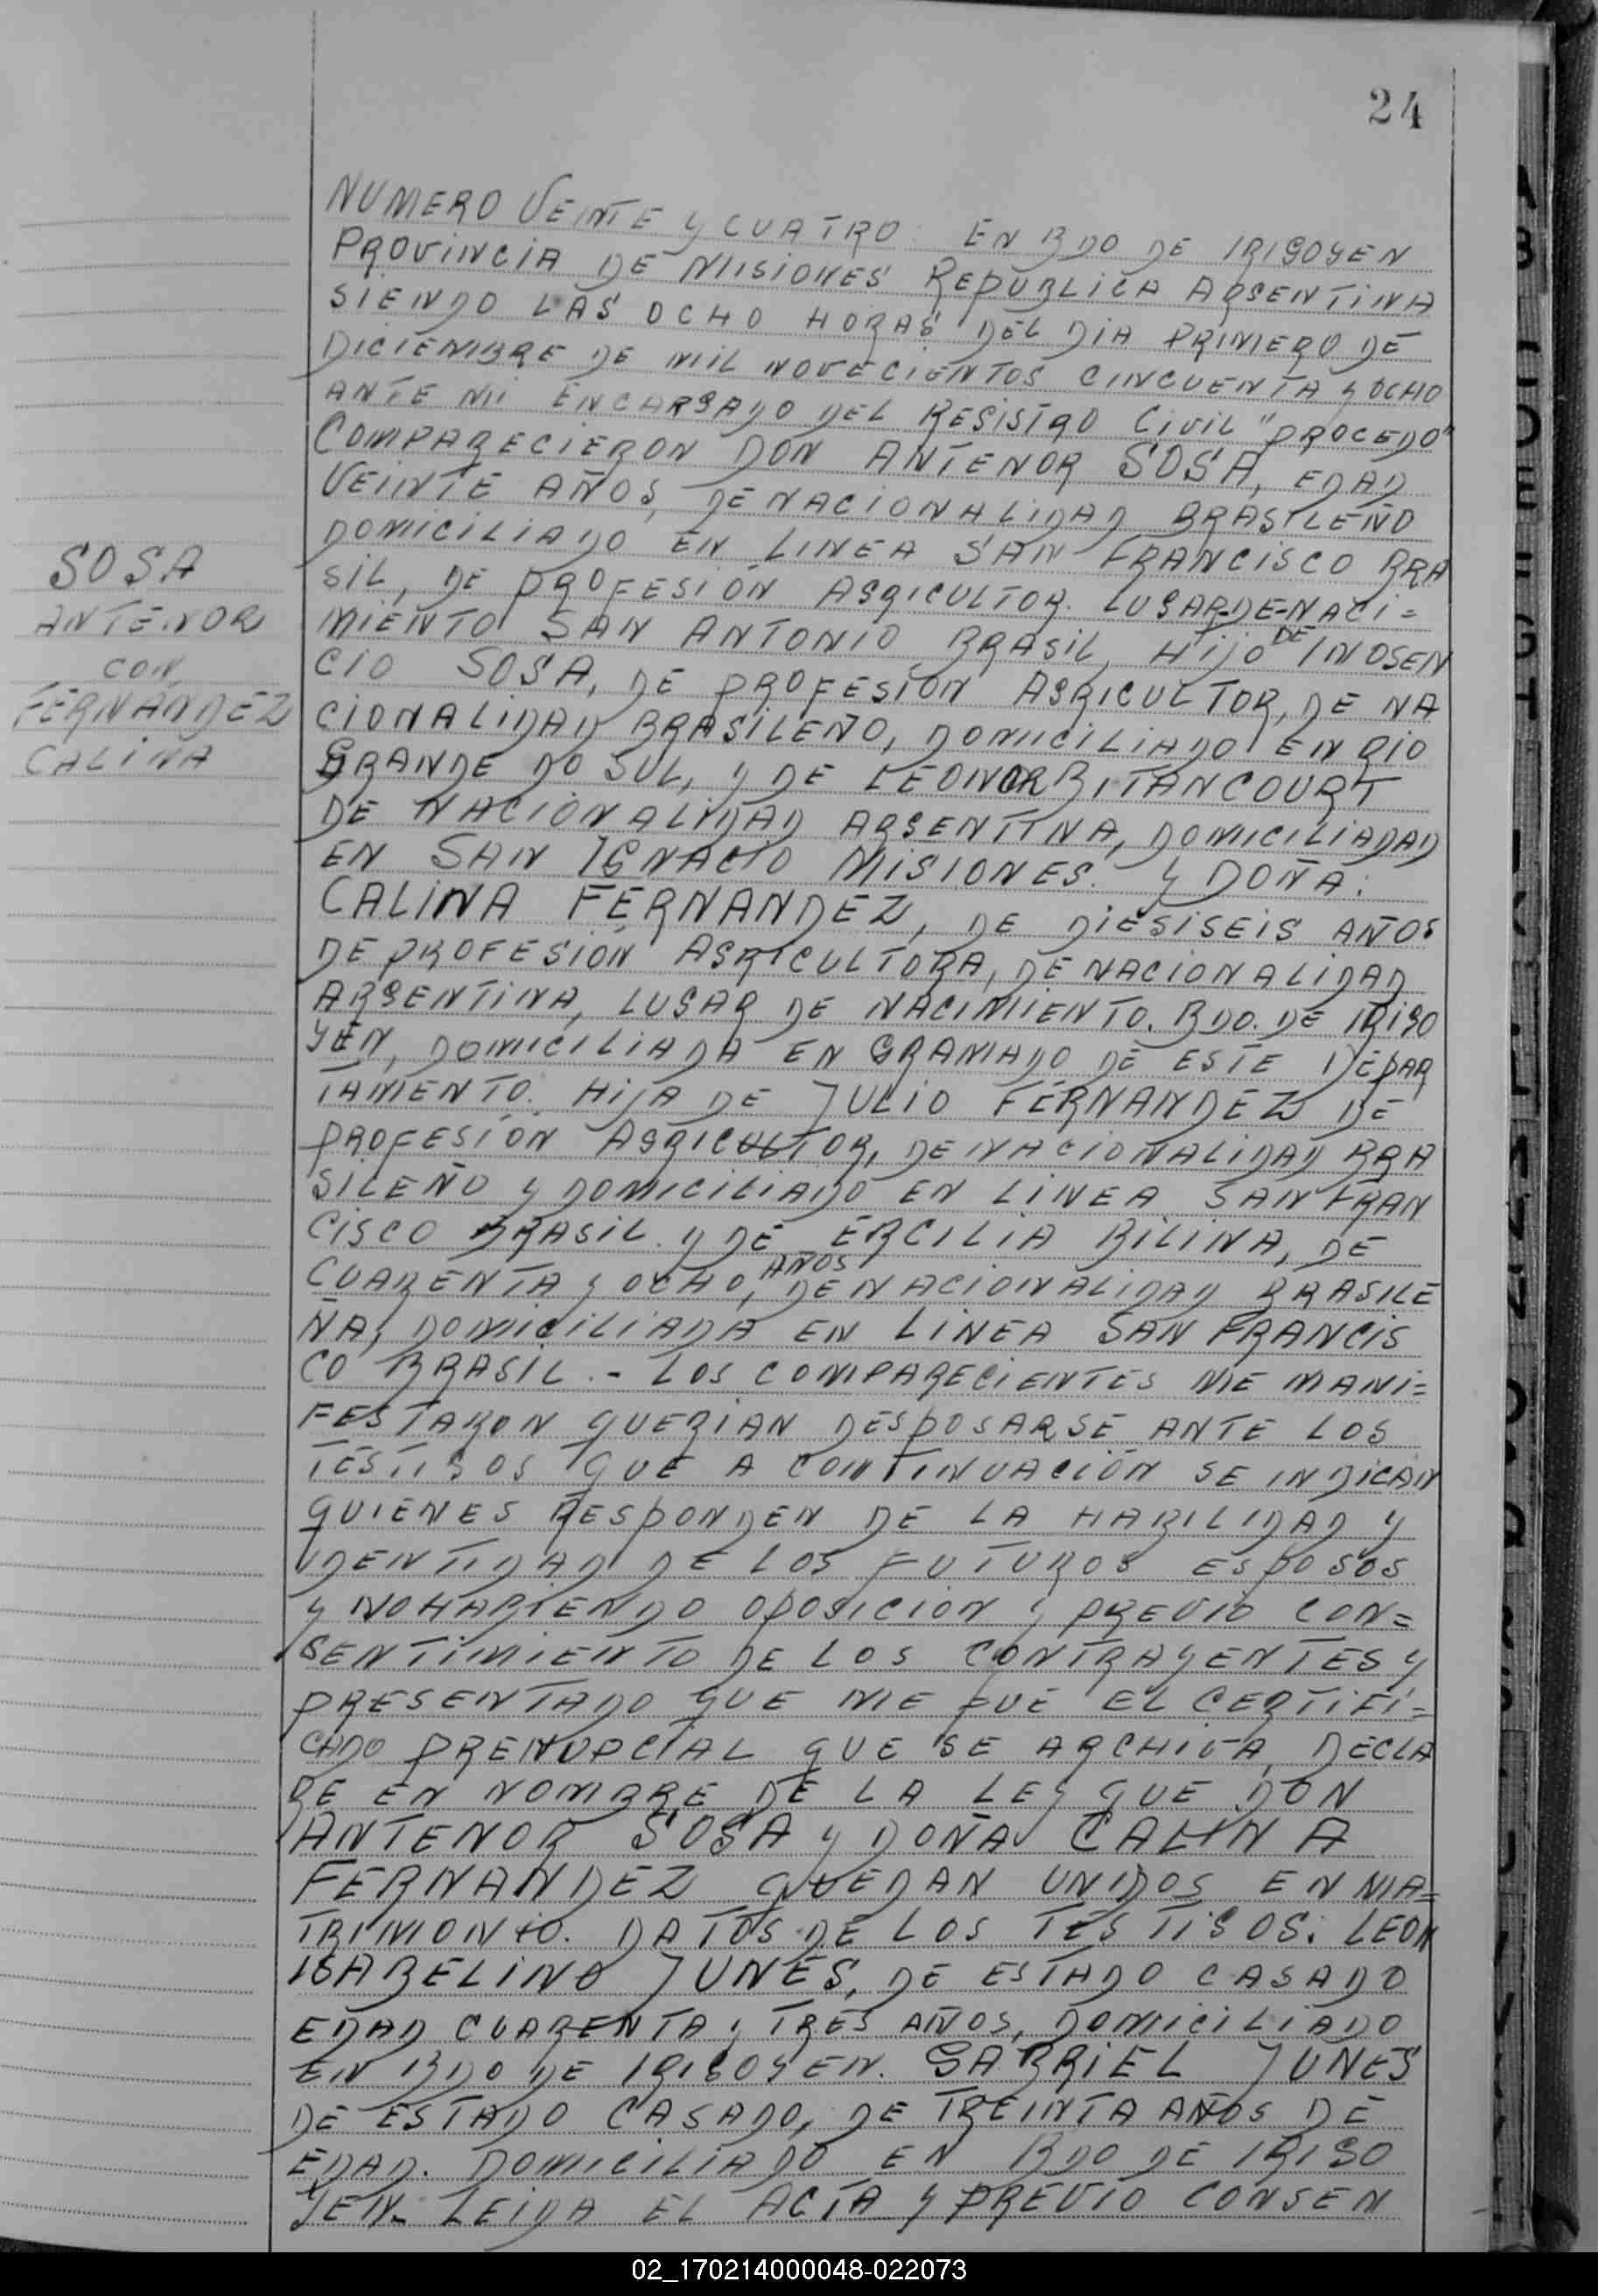 24
NUMERO VEINTE Y CUATRO. EN BDO DE IRIGOYEN
PROVINCIA DE MISIONES REPUBLICA ARGENTINA
SIENDO LAS OCHO HORAS DEL DIA PRIMERO DE
DICIEMBRE DE MIL NOVECIENTOS CINCUENTA Y OCHO
ANTE MI ENCARGADO DEL REGISTRO CIVIL "PROCEDO"
COMPARECIERON DON ANTENOR SOSA, EDAD
VEINTE AÑOS, DE NACIONALIDAD BRASILEÑO
DOMICILIADO EN LINEA SAN FRANCISCO BRA
SIL, DE PROFESION AGRICULTOR. LUGAR-DE-NACI=
MIENTO SAN ANTONIO BRASIL, HIJO DE INOSEN
CIO SOSA, DE PROFESION AGRICULTOR, DE NA
CIONALIDAD BRASILEÑO, DOMICILIADO EN RIO
GRANDE DO SUL, Y DE LEONOR BITANCOURT
DE NACIONALIDAD ARGENTINA, DOMICILIADAD
EN SAN IGNACIO MISIONES. Y DOÑA:
CALINA FERNANDEZ, DE DIESISEIS AÑOS
DE PROFESION AGRICULTORA, DE NACIONALIDAD
ARGENTINA, LUGAR DE NACIMIENTO. BDO. DE IRIGO
YEN, DOMICILIADA EN GRAMADO DE ESTE DEPAR
TAMIENTO. HIJA DE JULIO FERNANDEZ DE
PROFESION AGRICULTOR, DE NACIONALIDAD BRA
SILEÑO Y DOMICILIADO EN LINEA SAN FRAN
CISCO BRASIL. Y DE ERCILIA BILINA, DE
CUARENTA Y OCHO, AÑOS DE NACIONALIDAD BRASILE
ÑA, DOMICILIADA EN LINEA SAN FRANCIS
CO BRASIL.- LOS COMPARECIENTES ME MANI=
FESTARON QUERIAN DESPOSARSE ANTE LOS
TESTIGOS QUE A CONTINUACION SE INDICAN
QUIENES RESPONDEN DE LA HABILIDAD Y
IDENTIDAD DE LOS FUTUROS ESPOSOS
Y NO HABIENDO OPOSICION Y PREVIO CON=
SENTIMIENTO DE LOS CONTRAYENTES Y
PRESENTADO QUE ME FUE EL CERTIFI=
CADO PRENUPCIAL QUE SE ARCHIVA, DECLA
RE EN NOMBRE DE LA LEY QUE DON
ANTENOR SOSA Y DOÑA CALINA
FERNANDEZ QUEDAN UNIDOS EN MA=
TRIMONIO. DATOS DE LOS TESTIGOS: LEON
ISABELINO JUNES, DE ESTADO CASADO
EDAD CUARENTA Y TRES AÑOS, DOMICILIADO
EN BDO DE IRIGOYEN. GABRIEL JUNES
DE ESTADO CASADO, DE TREINTA AÑOS DE
EDAD. DOMICILIADO EN BDO DE IRIGO
YEN. LEIDA EL ACTA Y PREVIO CONSEN
SOSA
ANTENOR
CON
FERNANDEZ
CALINA
02_170214000048-022073